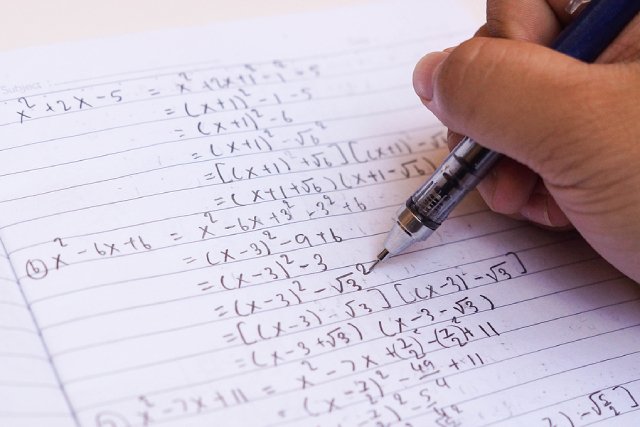 Subject :
x² + 2x - 5 = x² + 2x + 1² - 1² - 5
= (x+1)² - 1 - 5
= (x+1)² - 6
= (x+1)² - √6²
= [(x+1) + √6] [(x+1) - √
= (x+1+√6) (x+1-√6)
(b) x² - 6x + 6 = x² - 6x + 3² - 3² + 6
= (x-3)² - 9 + 6
= (x-3)² - 3
= (x-3)² - √3²
= [(x-3) - √3] [(x-3) - √3]
= (x-3+√3) (x-3-√3)
x² - 7x + 11 = x² - 7x + (7/2)² - (7/2)² + 11
= (x - 7/2)² - 49/4 + 11
)² - 5/4
) - √5/2]